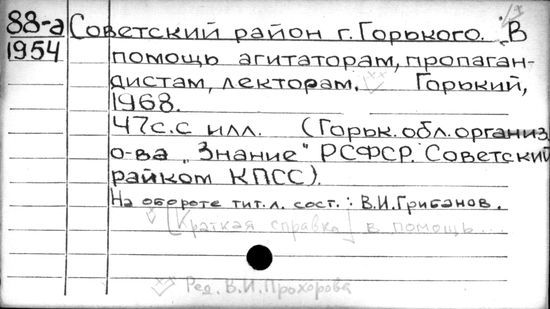 88-а Советский район г. Горького. В
1954 помощь агитаторам, пропаган-
дистам, лекторам. Горький,
1968.
47с. с илл. (Горьк. обл. организ.
о-ва „Знание" РСФСР. Советский
райком КПСС).
На обороте тит. л. сост.: В.И. Грибанов.
[Краткая справка] в помощь...
Ред. В.И. Прохорова